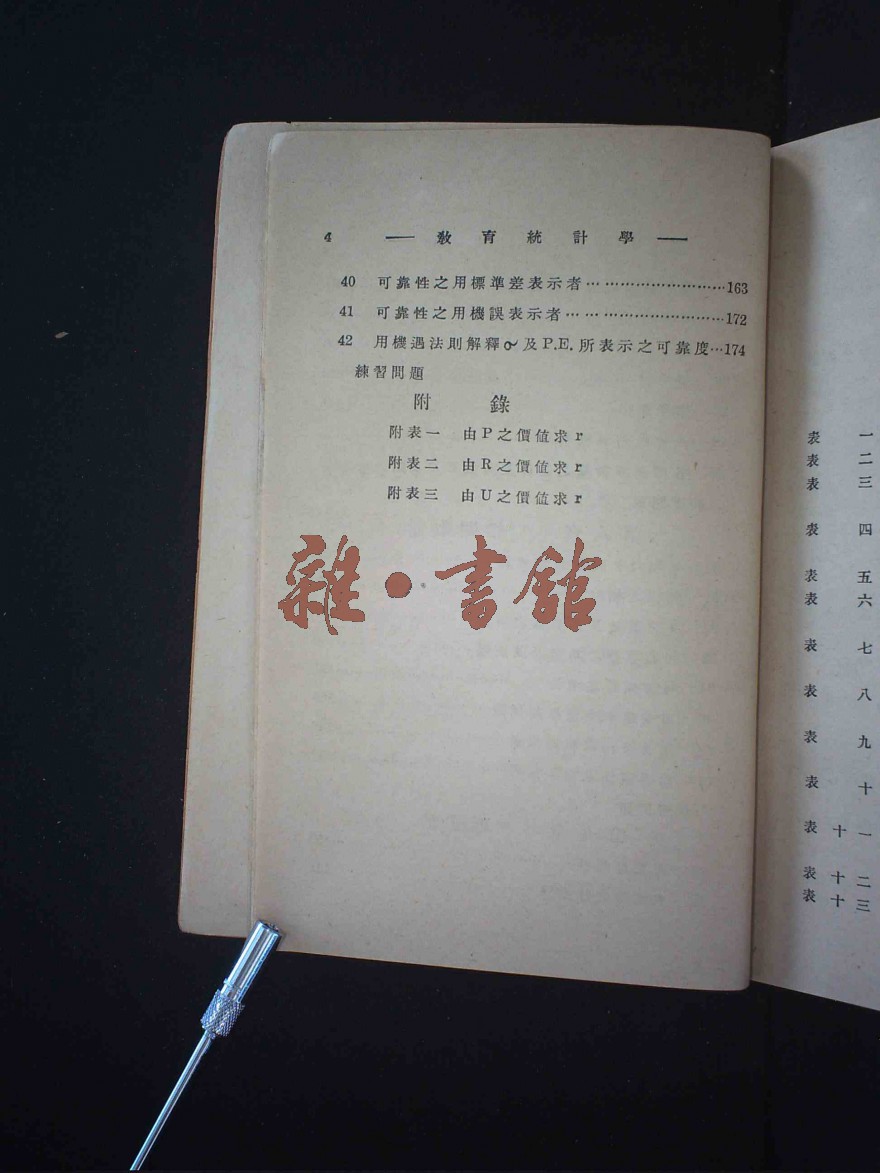 4 —— 敎育統計學 ——
40 可靠性之用標準差表示者………………………163
41 可靠性之用機誤表示者…………………………172
42 用機遇法則解釋σ及P.E.所表示之可靠度…174
練習問題
附 錄
附表一 由P之價値求r
附表二 由R之價値求r
附表三 由U之價値求r
雜·書館
表 一
表 二
表 三
表 四
表 五
表 六
表 七
表 八
表 九
表 十
表 十 一
表 十 二
表 十 三